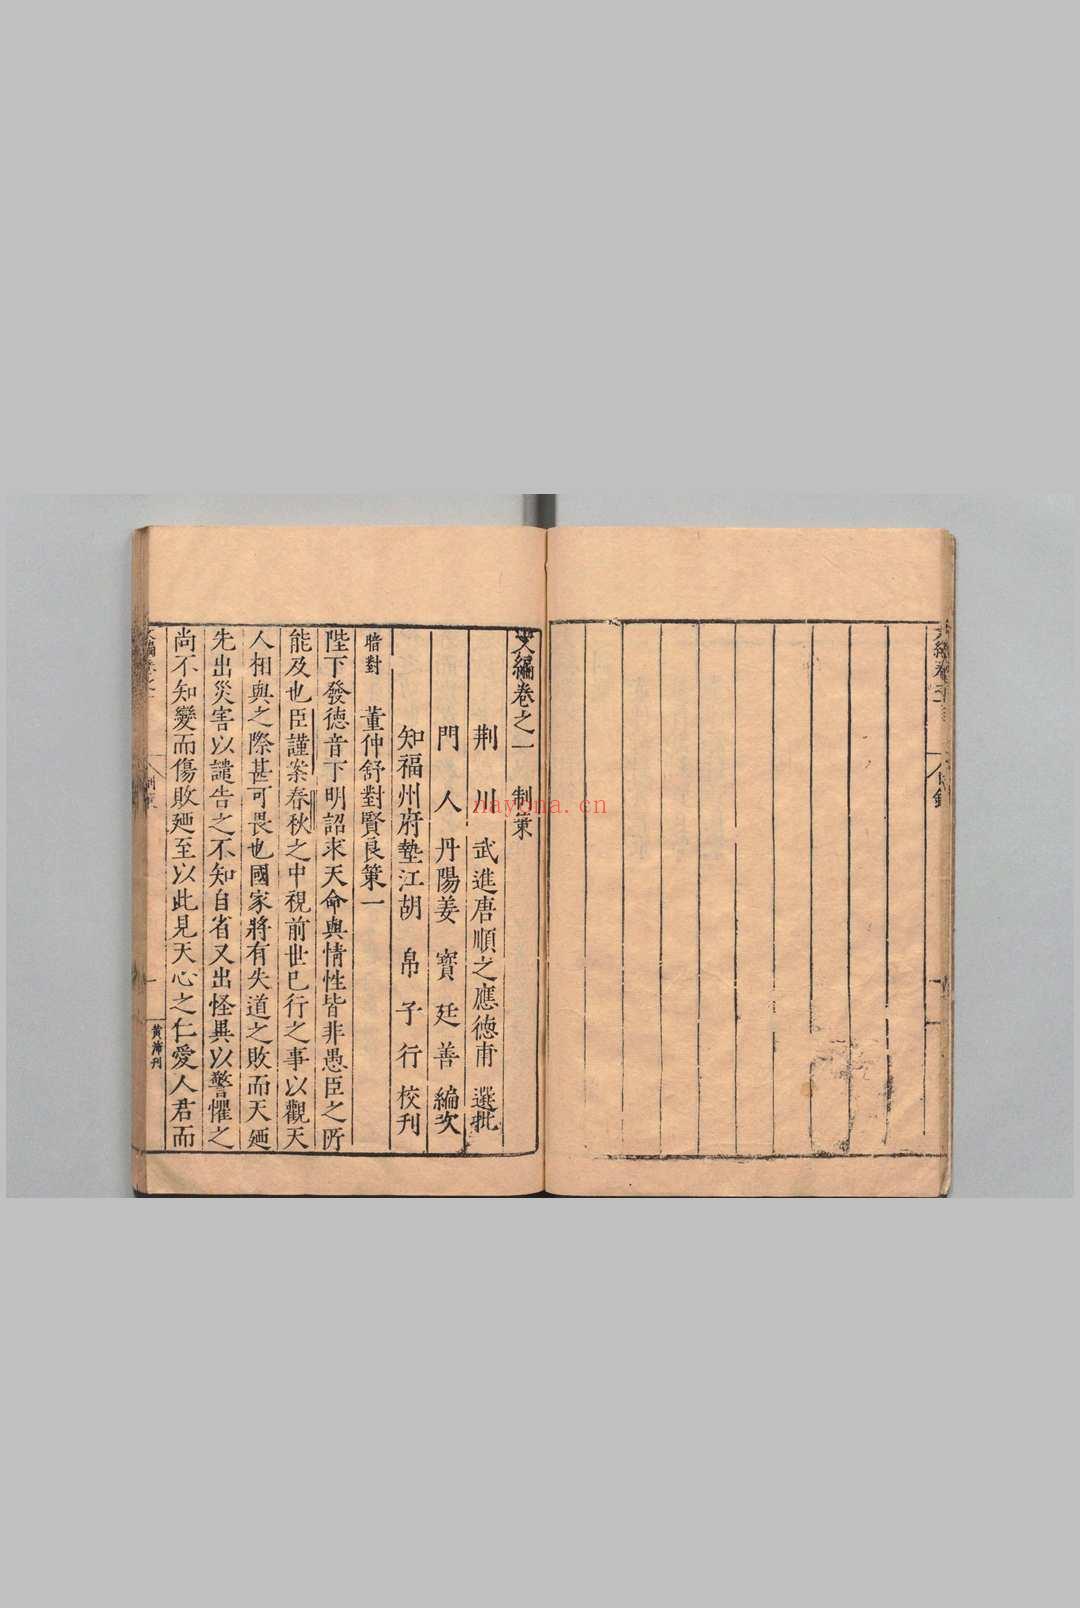 文編卷之一 制策
荆川 武進唐順之應德甫 選批
門人 丹陽姜寳廷善 編次
知福州府墊江胡帛子行 校刊
暗對 董仲舒對賢良策一
陛下發德音下明詔求天命與情性皆非愚臣之所
能及也臣謹案春秋之中視前世已行之事以觀天
人相與之際甚可畏也國家將有失道之敗而天廼
先出災害以譴告之不知自省又出怪異以警懼之
尚不知變而傷敗廼至以此見天心之仁愛人君而
nayona.cn